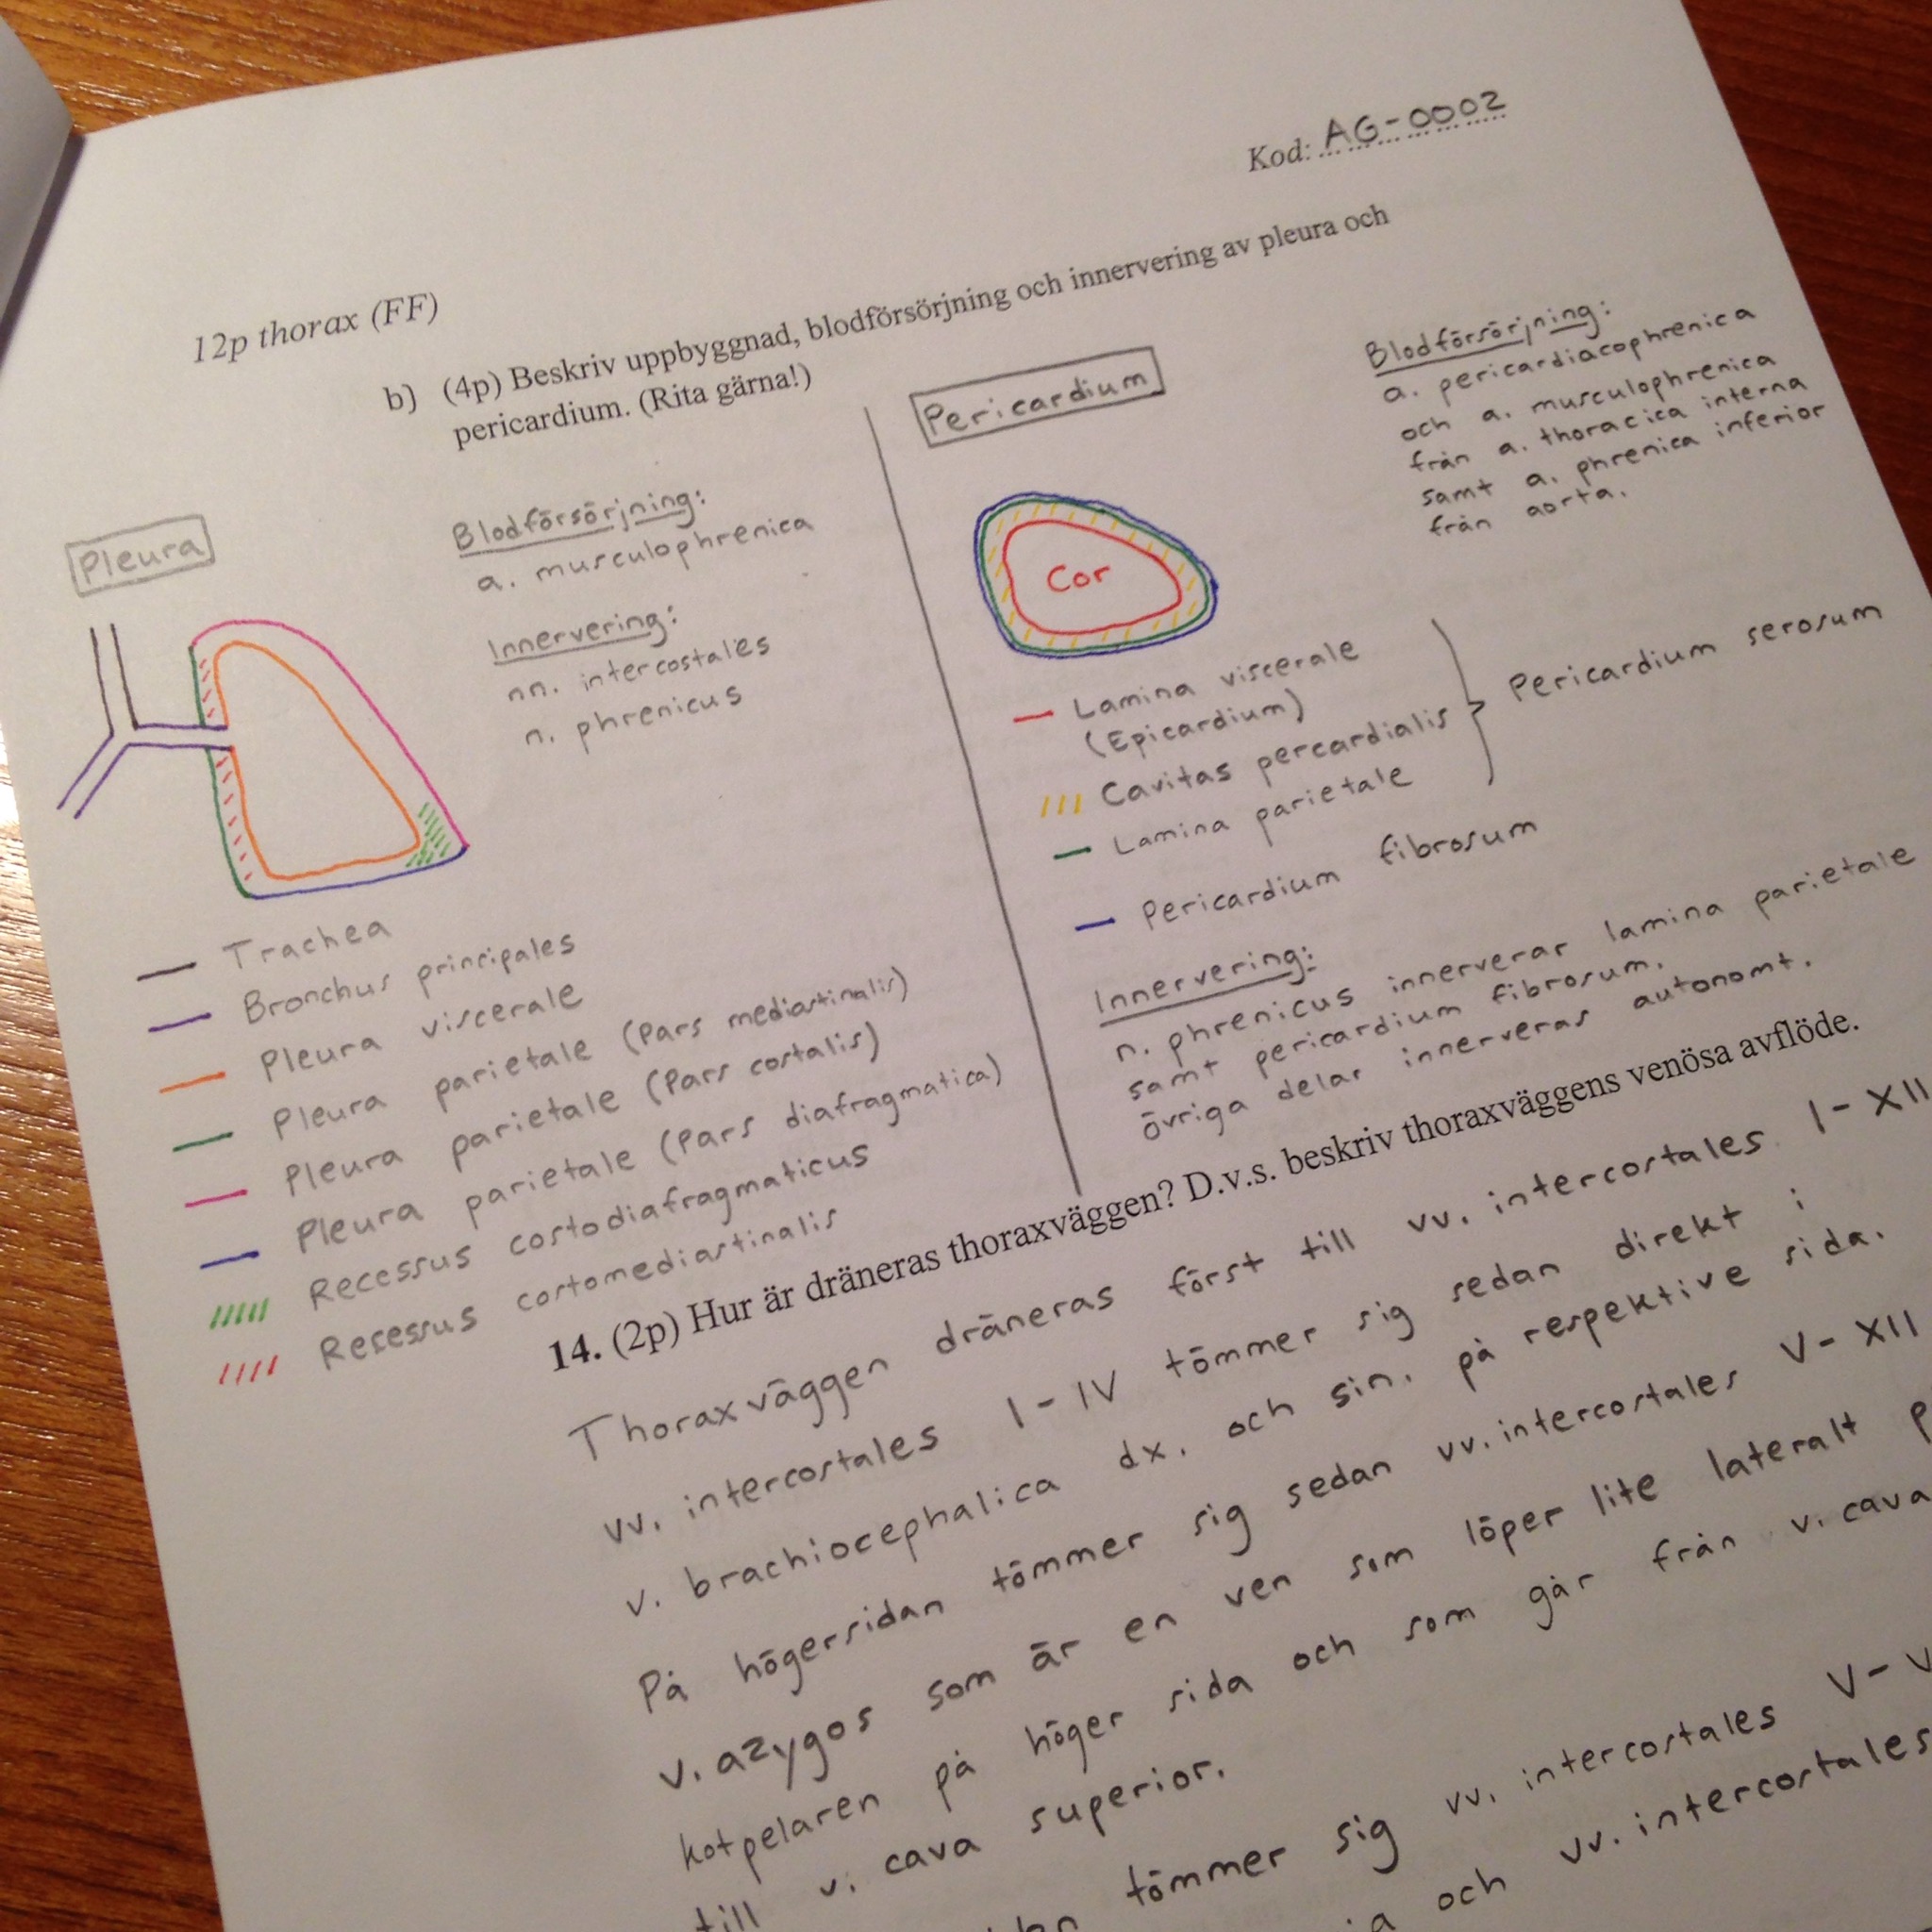 Kod: AG-0002
12p thorax (FF)
b) (4p) Beskriv uppbyggnad, blodförsörjning och innervering av pleura och
pericardium. (Rita gärna!)
Pleura
Blodförsörjning:
a. musculophrenica
Innervering:
nn. intercostales
n. phrenicus
Trachea
Bronchus principales
Pleura viscerale
Pleura parietale (Pars mediastinalis)
Pleura parietale (Pars costalis)
Pleura parietale (Pars diafragmatica)
Recessus costodiafragmaticus
Resessus costomediastinalis
Pericardium
Blodförsörjning:
a. pericardiacophrenica
och a. musculophrenica
från a. thoracica interna
samt a. phrenica inferior
från aorta.
Cor
Lamina viscerale
(Epicardium)
Cavitas percardialis
Lamina parietale
Pericardium serosum
Pericardium fibrosum
Innervering:
n. phrenicus innerverar lamina parietale
samt pericardium fibrosum.
övriga delar innerveras autonomt.
14. (2p) Hur är dräneras thoraxväggen? D.v.s. beskriv thoraxväggens venösa avflöde.
Thoraxväggen dräneras först till vv. intercostales I-XII
vv. intercostales I-IV tömmer sig sedan direkt i
v. brachiocephalica dx. och sin. på respektive sida.
På högersidan tömmer sig sedan vv. intercostales V-XII
v. azygos som är en ven som löper lite lateralt
kotpelaren på höger sida och som går från v. cava
till v. cava superior.
tömmer sig vv. intercostales V-
och vv. intercostales